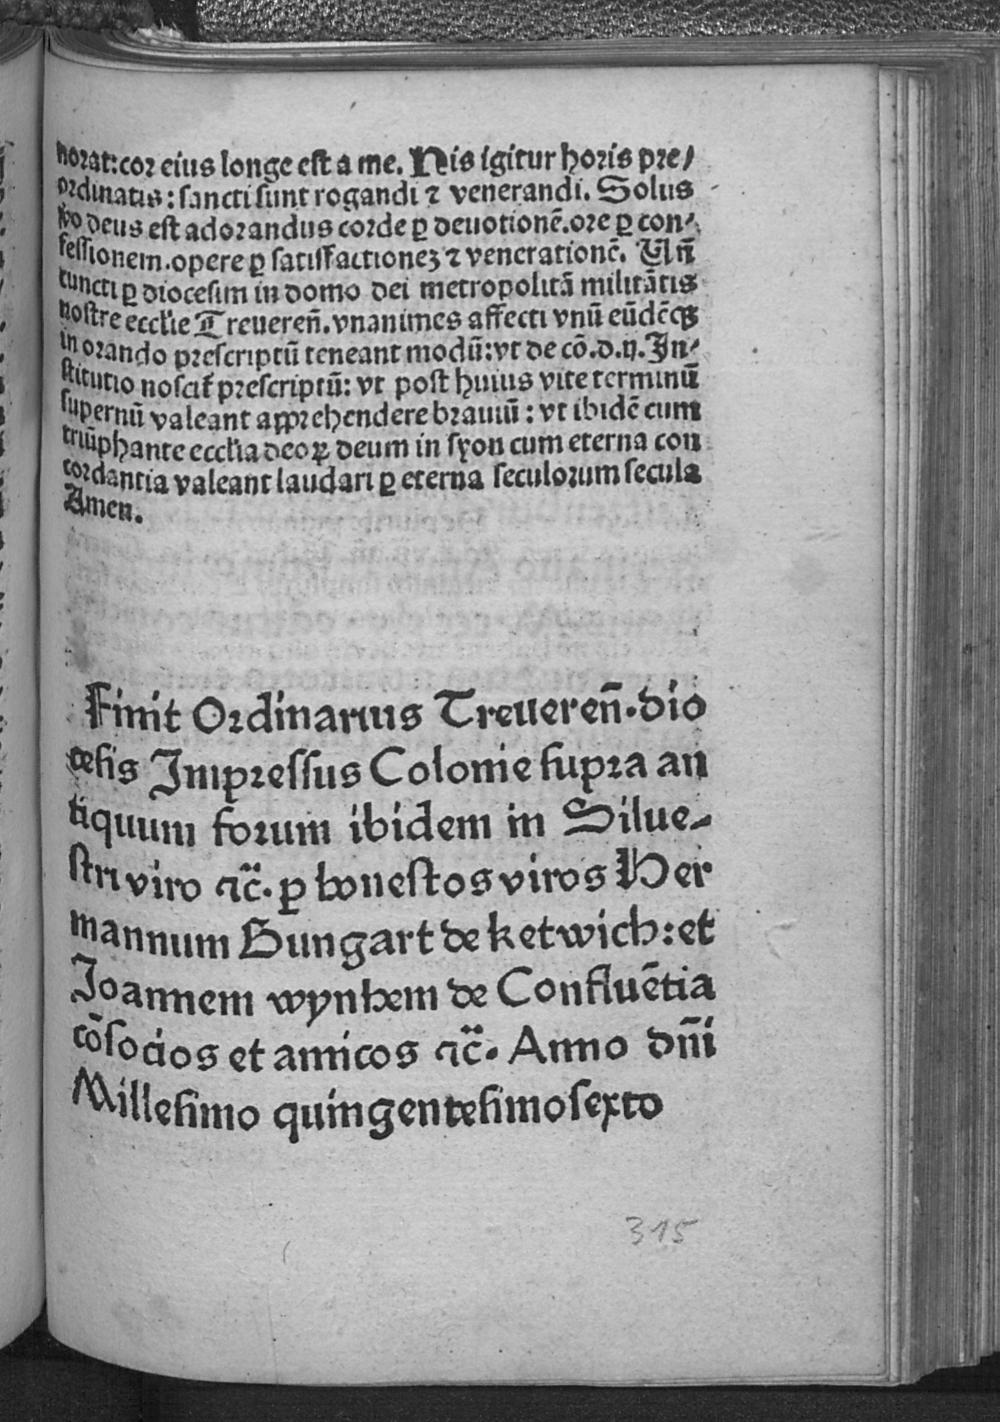 norat: cor eius longe est a me. His igitur horis pre/
ordinatis: sancti sunt rogandi ⁊ venerandi. Solus
vo deus est adorandus corde ꝑ deuotionē. ore ꝑ con-
fessionem. opere ꝑ satisfactioneꝫ ⁊ venerationē. Un̄
cuncti ꝑ diocesim in domo dei metropolitā militātis
nostre eccl'ie Treueren̄. vnanimes affecti vnū eūdēqꝫ
in orando prescriptū teneant modū: vt de cō. d. ij. In-
stitutio noscit᷑ prescriptū: vt post huius vite terminū
supernū valeant apprehendere brauiū: vt ibidē cum
triūphante eccl'ia deoꝝ deum in syon cum eterna con
cordantia valeant laudari ꝑ eterna seculorum secula
Amen.
Finit Ordinarius Treueren̄. dio
cesis Impressus Colonie supra an
tiquum forum ibidem in Silue-
stri viro ⁊c̄. ꝑ honestos viros Her
mannum Bungart de ketwich: et
Joannem wynhem de Confluētia
cōsocios et amicos ⁊c̄. Anno dn̄i
Millesimo quingentesimosexto
315